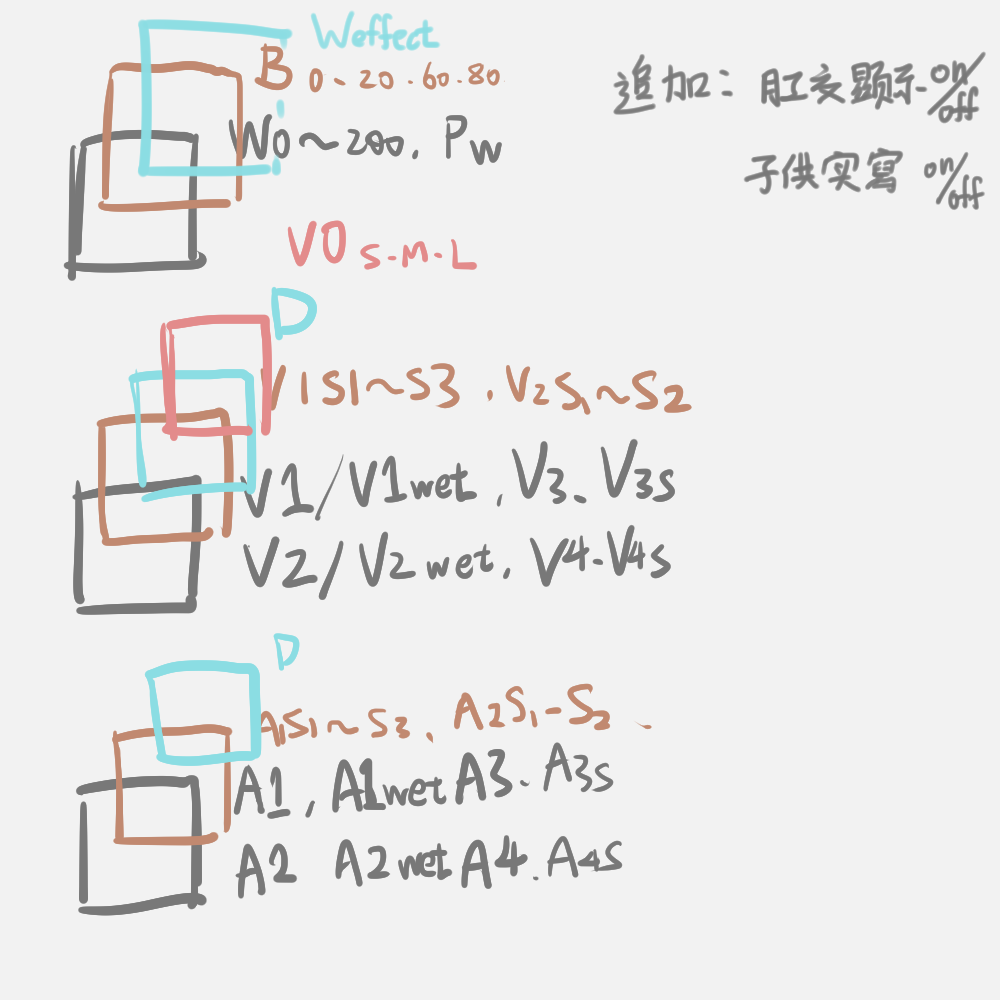 Weffect
B 0~20.60.80
W0~200. PW
追加：肛姦顕示on/off
子供実寫 on/off
V0 S-M-L
D
V1S1~S3.V2S1~S2
V1/V1wet,V3.V3s
V2/V2wet.V4-V4s
D
A1S1~S3.A2S1-S2
A1,A1wetA3.A3s
A2 A2wetA4.A4s